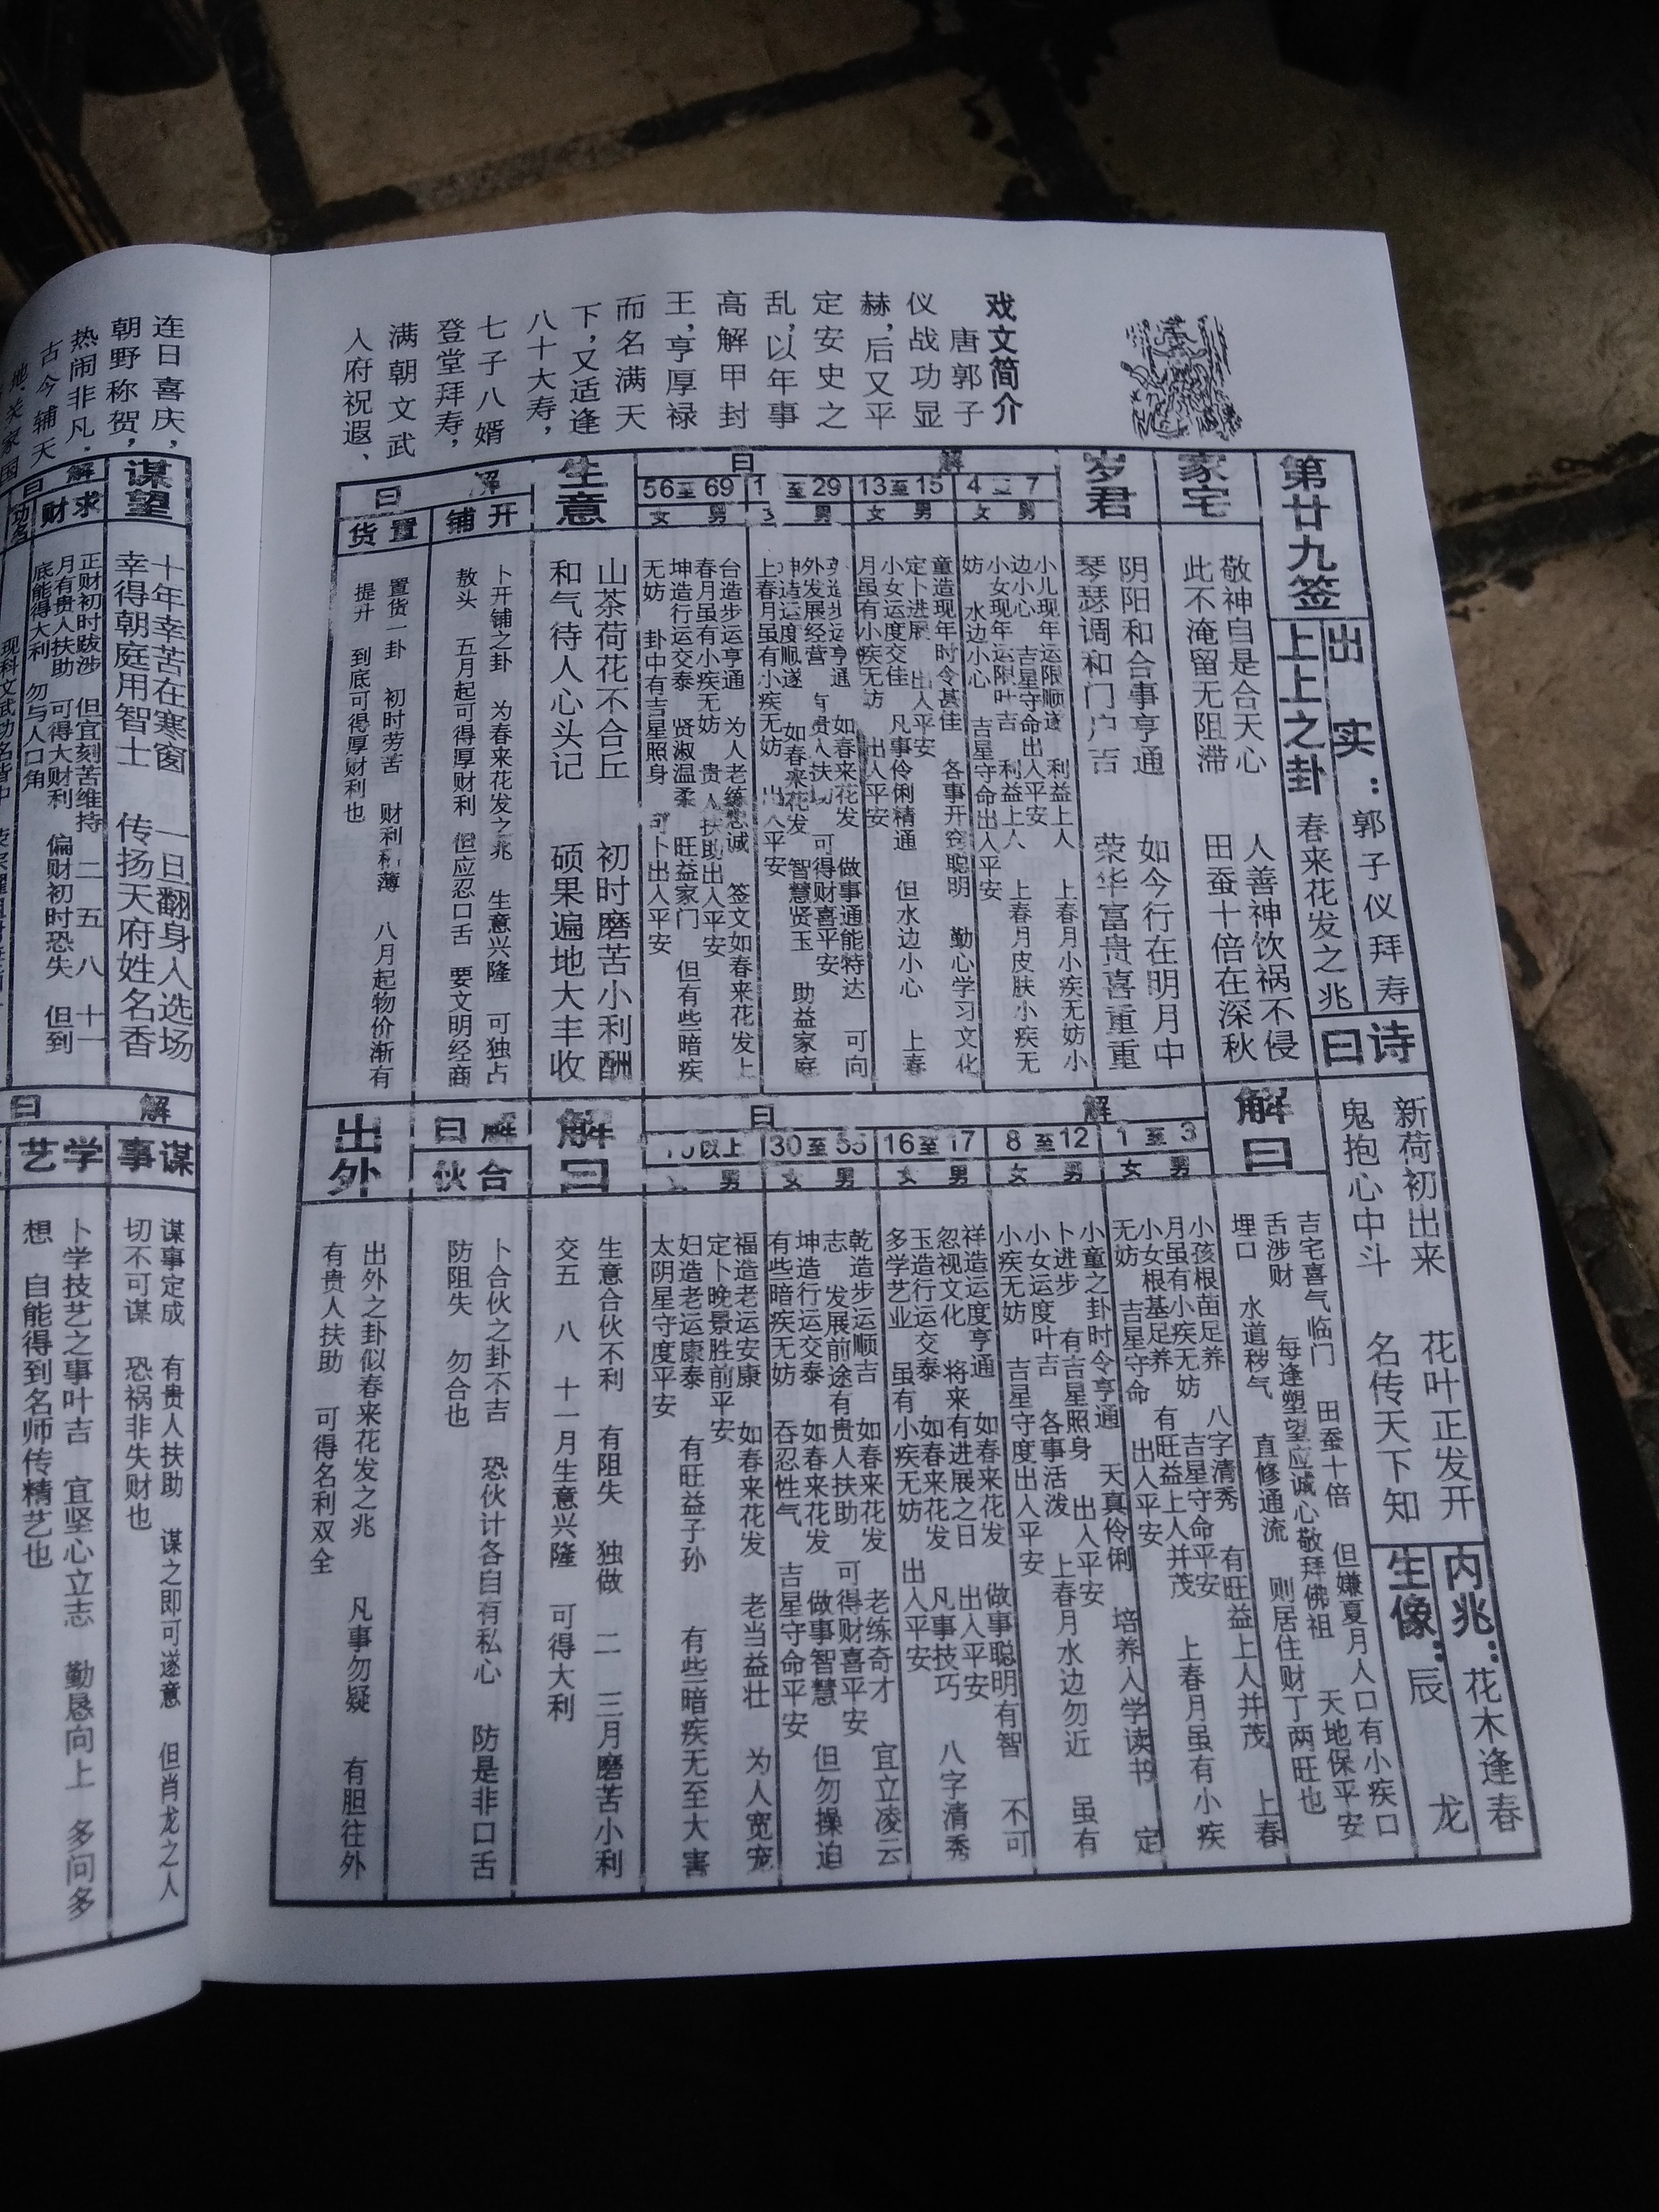 戏文简介
唐郭子
仪战功显
赫,后又平
定安史之
乱,以年事
高解甲封
王,亨厚禄
而名满天
下,又适逢
八十大寿,
七子八婿
登堂拜寿,
满朝文武
入府祝遐、
第廿九签
出实:郭子仪拜寿
上上之卦 春来花发之兆
诗曰
新荷初出来 花叶正发开
鬼抱心中斗 名传天下知
内兆:花木逢春
生像:辰 龙
家宅
敬神自是合天心 人善神饮祸不侵
此不淹留无阻滞 田蚕十倍在深秋
解曰
吉宅喜气临门 田蚕十倍 但嫌夏月人口有小疾口
舌涉财 每逢塑望应诚心敬拜佛祖 天地保平安
埋口 水道秽气 直修通流 则居住财丁两旺也
岁君
阴阳和合事亨通 如今行在明月中
琴瑟调和门户吉 荣华富贵喜重重
解曰
4至7
男 女
小儿现年运限顺遂 利益上人 上春月小疾无妨小
边小心 吉星守命出入平安
小女现年运限叶吉 利益上人 上春月皮肤小疾无
妨 水边小心 吉星守命出入平安
13至15
男 女
童造现年时令甚佳 各事开窍聪明 勤心学习文化
定卜进展 出入平安
小女运度交佳 凡事伶俐精通 但水边小心 上春
月虽有小疾无妨 出入平安
至29
男
外发展经营 有贵人扶 可得财喜平安
如春来花发 做事通能特达 可向
坤造运度顺遂 如春来花发 智慧贤玉 助益家庭
上春月虽有小疾无妨 出入平安
56至69
男 女
台造步运亨通 为人老练忠诚 签文如春来花发上
春月虽有小疾无妨 贵人扶助出入平安
坤造行运交泰 贤淑温柔 旺益家门 但有些暗疾
无妨 卦中有吉星照身 可卜出入平安
解曰
1至3
男 女
小孩根苗足养 八字清秀 有旺益上人并茂 上春
月虽有小疾无妨 吉星守命平安
小女根基足养 有旺益上人并茂 上春月虽有小疾
无妨 吉星守命 出入平安
8至12
男 女
小童之卦时令亨通 天真伶俐 培养入学读书 定
卜进步 有吉星照身 出入平安
小女运度叶吉 各事活泼 上春月水边勿近 虽有
小疾无妨 吉星守度出入平安
16至17
男 女
祥造运度亨通 如春来花发 做事聪明有智 不可
忽视文化 将来有进展之日 出入平安
玉造行运交泰 如春来花发 凡事技巧 八字清秀
多学艺业 虽有小疾无妨 出入平安
30至55
男 女
乾造步运顺吉 如春来花发 老练奇才 宜立凌云
志 发展前途有贵人扶助 可得财喜平安
坤造行运交泰 如春来花发 做事智慧 但勿操迫
有些暗疾无妨 吞忍性气 吉星守命平安
以上
男
福造老运安康 如春来花发 老当益壮 为人宽宠
定卜晚景胜前平安
妇造老运康泰 有旺益子孙 有些暗疾无至大害
太阴星守度平安
生意
山茶荷花不合丘 初时磨苦小利酬
和气待人心头记 硕果遍地大丰收
解曰
生意合伙不利 有阻失 独做 二 三月磨苦小利
交五 八 十一月生意兴隆 可得大利
解曰
开铺
卜开铺之卦 为春来花发之兆 生意兴隆 可独占
敖头 五月起可得厚财利 但应忍口舌 要文明经商
置货
置货一卦 初时劳苦 财利稀薄 八月起物价渐有
提升 到底可得厚财利也
解曰
合伙
卜合伙之卦不吉 恐伙计各自有私心 防是非口舌
防阻失 勿合也
出外
出外之卦似春来花发之兆 凡事勿疑 有胆往外
有贵人扶助 可得名利双全
连日喜庆,
朝野称贺,
热闹非凡.
古今辅天
谋望
十年幸苦在寒窗 一旦翻身入选场
幸得朝庭用智士 传扬天府姓名香
解曰
求财
正财初时跋涉 但宜刻苦维持 二 五 八 十一
月有贵人扶助 可得大财利 偏财初时恐失 但到
底能得大利 勿与人口角
解曰
谋事
谋事定成 有贵人扶助 谋之即可遂意 但肖龙之人
切不可谋 恐祸非失财也
学艺
卜学技艺之事叶吉 宜坚心立志 勤恳向上 多问多
想 自能得到名师传精艺也